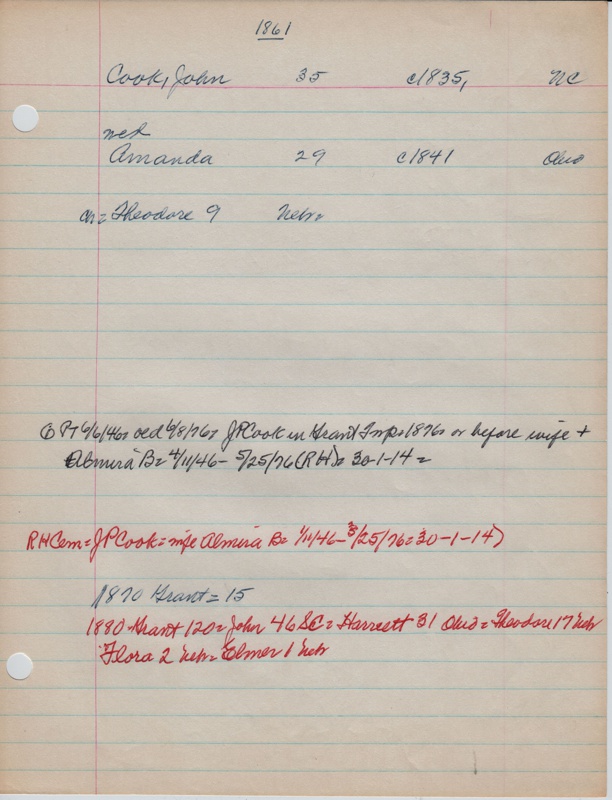 1861
Cook, John 35 c1835, NC
wed
Amanda 29 c1841 Ohio
ch= Theodore 9 Nebr=
6/6/46= ced 6/8/76= JPCook in Grant Twp=1876= or before wife +
Almira B= 4/11/46- 5/25/76(RH)= 30-1-14=
RHCem=JPCook=wife Almira B= 4/11/46-3/25/76=30-1-14)
1870 Grant=15
1880-Grant 120=John 46 SC=Harreett 31 Ohio=Theodore 17 Nebr
Flora 2 Nebr=Elmer 1 Nebr